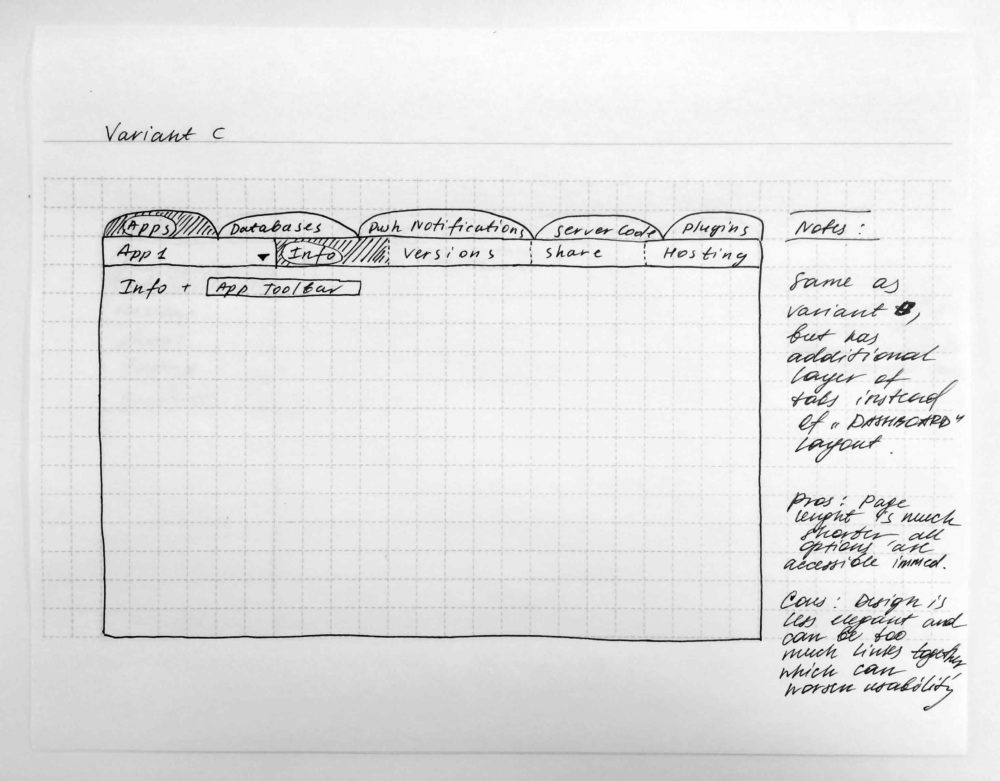 Variant C
Apps Databases Push Notifications Server Code Plugins
App 1 Info Versions Share Hosting
Info + App Toolbar
Notes:
Same as
variant ,
but has
additional
layer of
tabs instead
of "DASHBOARD"
Layout.
Pros: Page
lenght is much
shorter all
options are
accessible immed.
Cons: Design is
less elegant and
can be too
much links together
which can
worsen usability